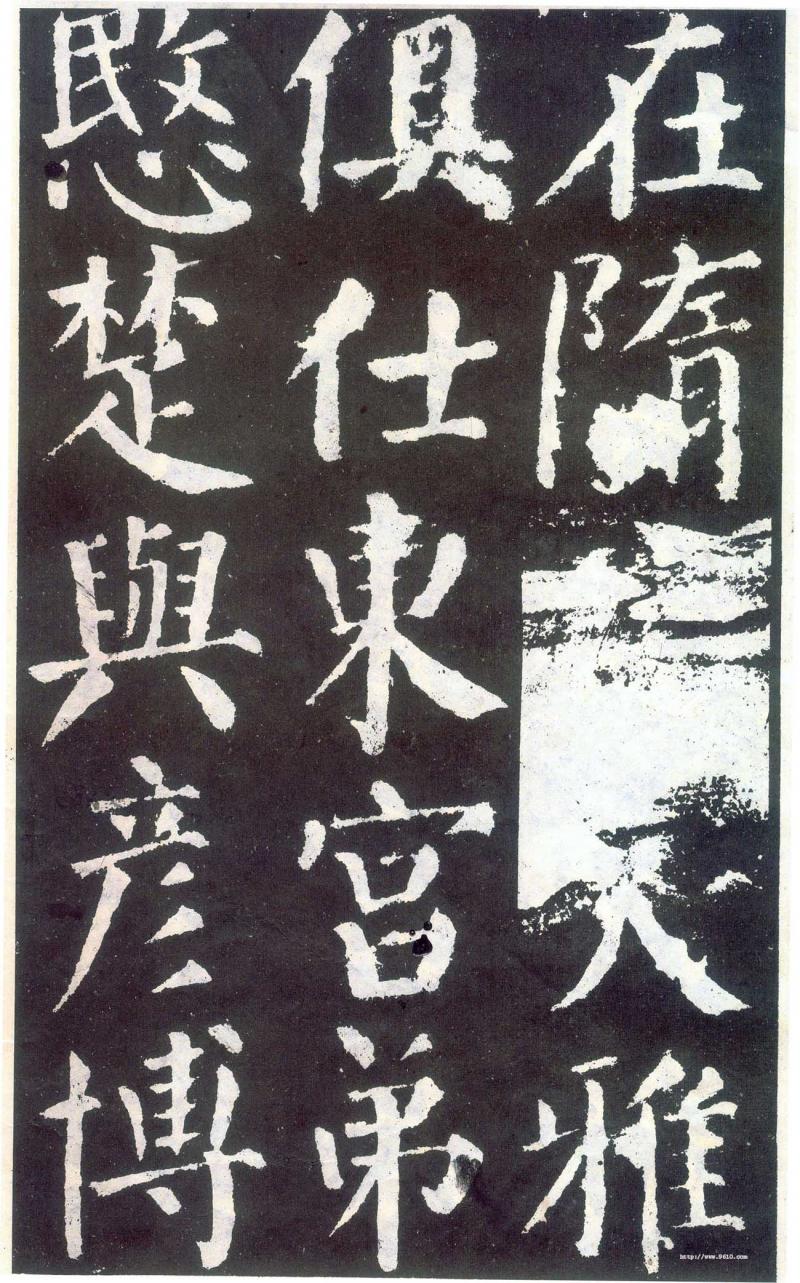 在隋大雅
俱仕東宮弟
愍楚與彦博
http://www.9610.com